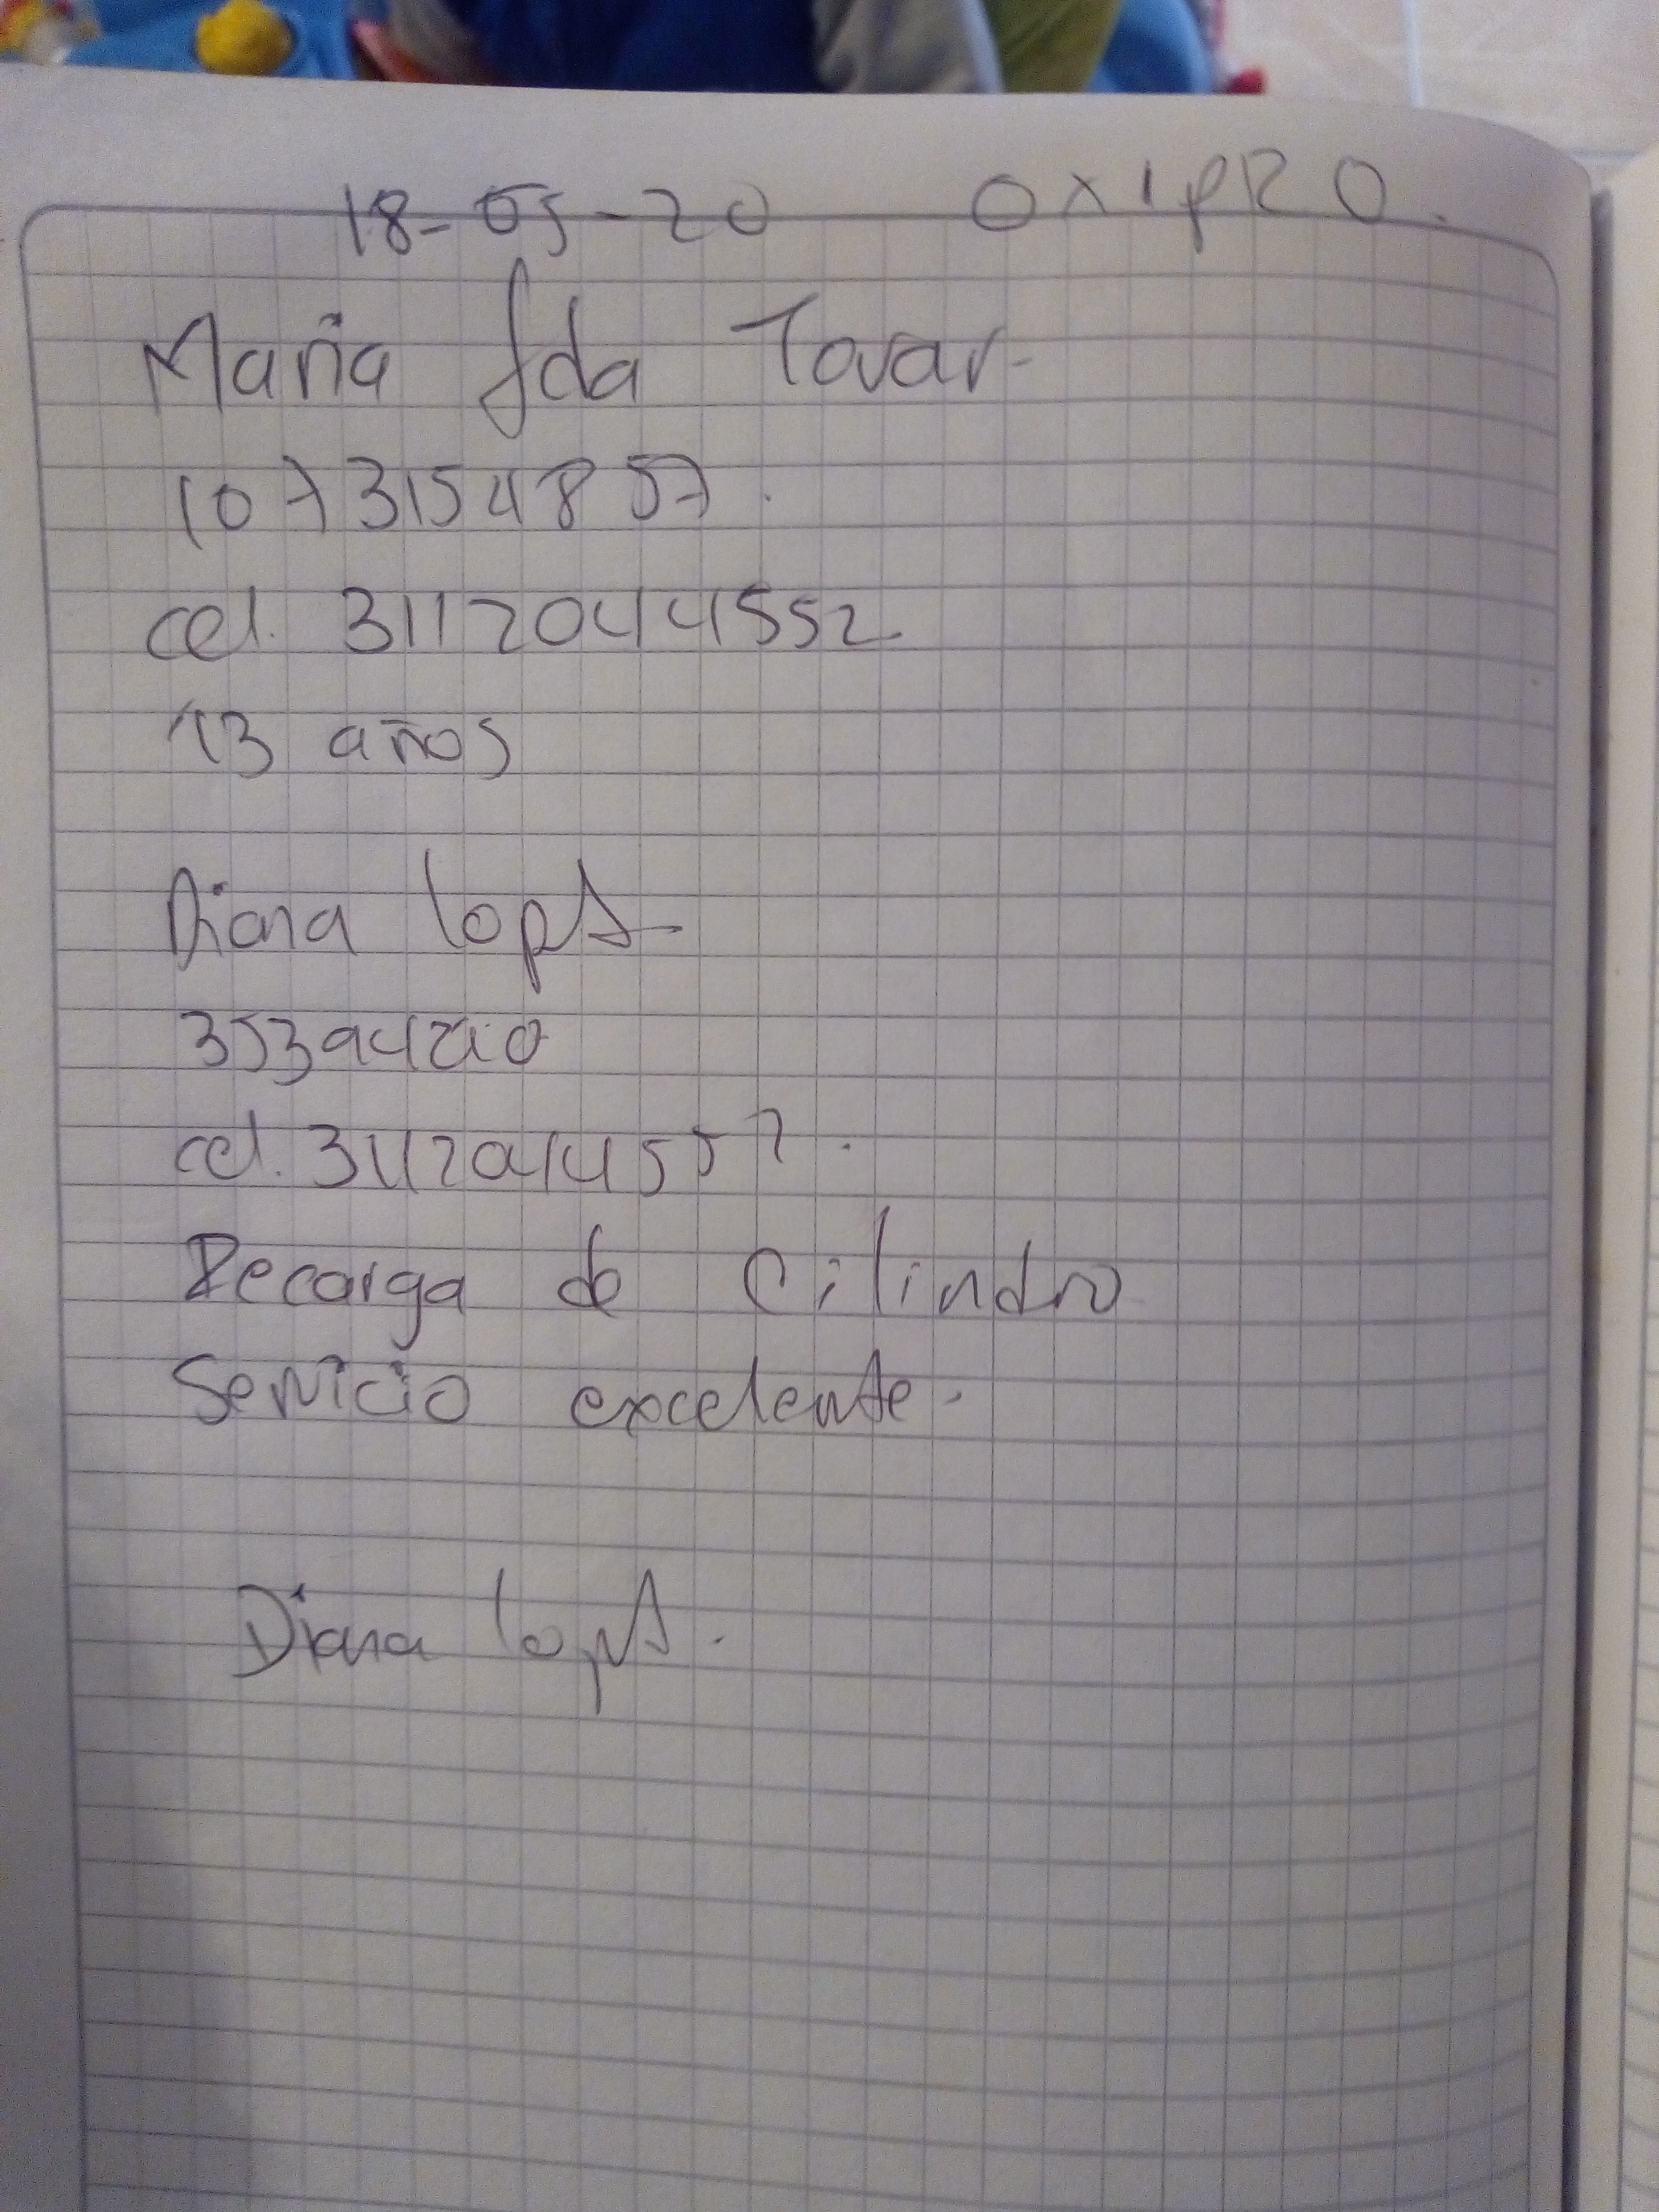 18-05-20 OXIPRO.
Maria fda Tovar-
1073154857.
cel. 3112044552
13 años
Diana
cel. 3112044552.
Recarga de cilindro
Servicio excelente.
Diana